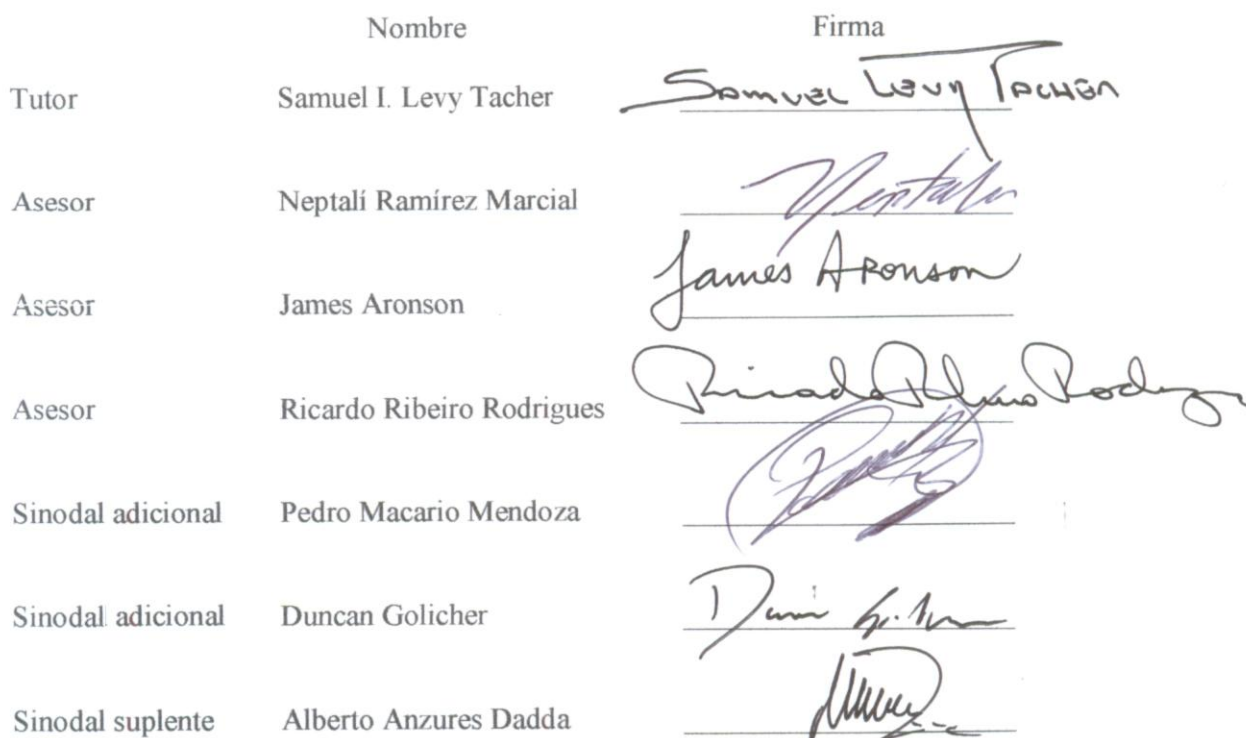 Nombre Firma
Tutor Samuel I. Levy Tacher Samuel Levy Tacher
Asesor Neptalí Ramírez Marcial Neptalí
Asesor James Aronson James Aronson
Asesor Ricardo Ribeiro Rodrigues
Sinodal adicional Pedro Macario Mendoza
Sinodal adicional Duncan Golicher
Sinodal suplente Alberto Anzures Dadda